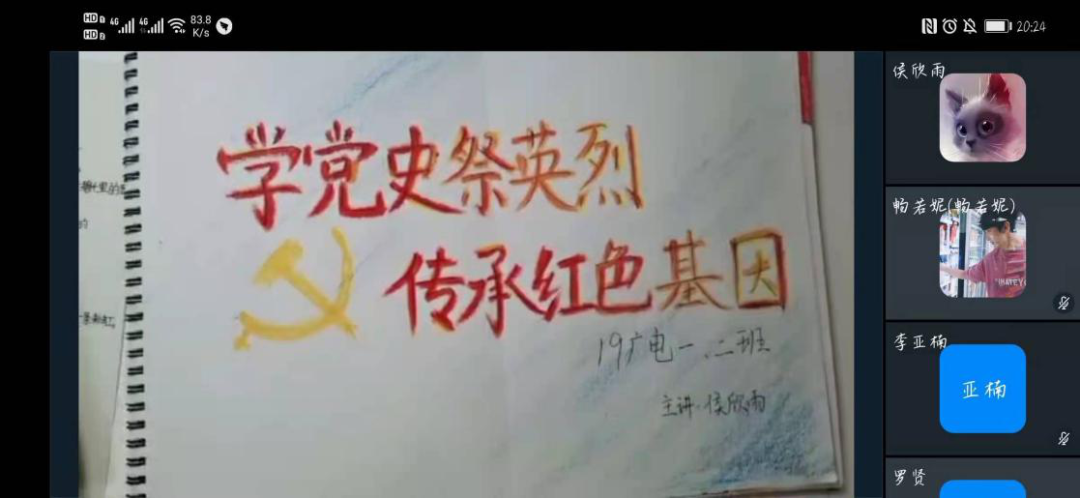 HD 4G 4G 83.8 K/s 20:24
HD
学党史祭英烈
传承红色基因
19广电一、二班
主讲:侯欣雨
侯欣雨
畅若妮(畅若妮)
李亚楠
亚楠
罗贤